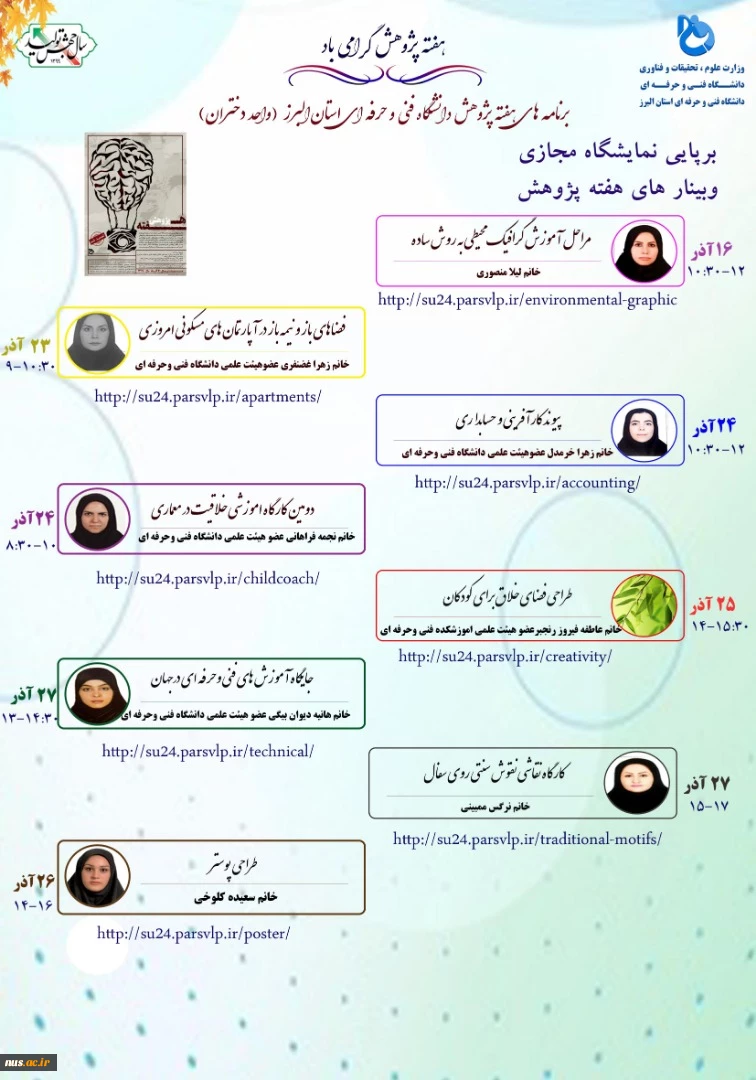 هفته پژوهش گرامی باد
سال جهش تولید
۱۳۹۹
وزارت علوم ، تحقیقات و فناوری
دانشگاه فنی و حرفه ای
دانشگاه فنی و حرفه ای استان البرز
برنامه های هفته پژوهش دانشگاه فنی و حرفه ای استان البرز (واحد دختران)
برپایی نمایشگاه مجازی
وبینار های هفته پژوهش
هفته
پژوهش
۱۶ آذر
۱۰:۳۰-۱۲
مراحل آموزش گرافیک محیطی به روش ساده
خانم لیلا منصوری
http://su24.parsvlp.ir/environmental-graphic
۲۳ آذر
۹-۱۰:۳۰
فضاهای باز و نیمه باز در آپارتمان های مسکونی امروزی
خانم زهرا غضنفری عضوهیئت علمی دانشگاه فنی وحرفه ای
http://su24.parsvlp.ir/apartments/
۲۴ آذر
۱۰:۳۰-۱۲
پیوند کارآفرینی و حسابداری
خانم زهرا خرمدل عضوهیئت علمی دانشگاه فنی وحرفه ای
http://su24.parsvlp.ir/accounting/
۲۴ آذر
۸:۳۰-۱۰
دومین کارگاه اموزشی خلاقیت در معماری
خانم نجمه فراهانی عضو هیئت علمی دانشگاه فنی وحرفه ای
http://su24.parsvlp.ir/childcoach/
۲۵ آذر
۱۴-۱۵:۳۰
طراحی فضای خلاق برای کودکان
خانم عاطفه فیروز رنجبرعضو هیئت علمی اموزشکده فنی وحرفه ای
http://su24.parsvlp.ir/creativity/
۲۷ آذر
۱۳-۱۴:۳۰
جایگاه آموزش های فنی و حرفه ای در جهان
خانم هانیه دیوان بیگی عضو هیئت علمی دانشگاه فنی وحرفه ای
http://su24.parsvlp.ir/technical/
۲۷ آذر
۱۵-۱۷
کارگاه نقاشی نقوش سنتی روی سفال
خانم نرگس ممبینی
http://su24.parsvlp.ir/traditional-motifs/
۲۶ آذر
۱۴-۱۶
طراحی پوستر
خانم سعیده کلوخی
http://su24.parsvlp.ir/poster/
nus.ac.ir